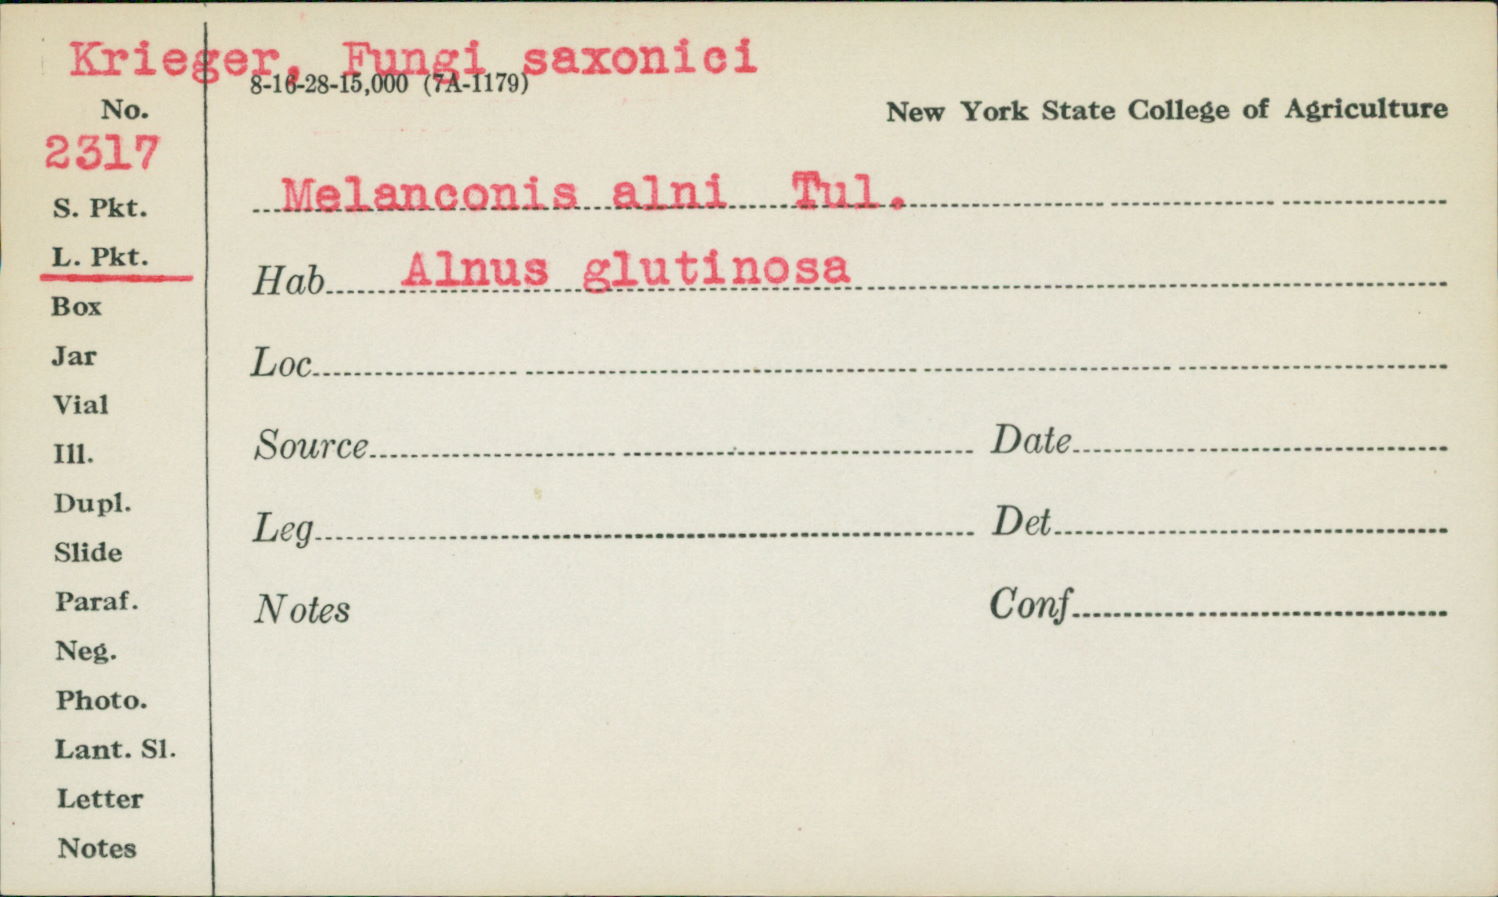 Krieger, Fungi saxonici
8-16-28-15,000 (7A-1179)
No.
New York State College of Agriculture
2317
S. Pkt.
Melanconis alni Tul.
L. Pkt.
Hab Alnus glutinosa
Box
Jar
Loc
Vial
Source Date
Ill.
Dupl.
Leg Det
Slide
Paraf.
Notes Conf
Neg.
Photo.
Lant. Sl.
Letter
Notes